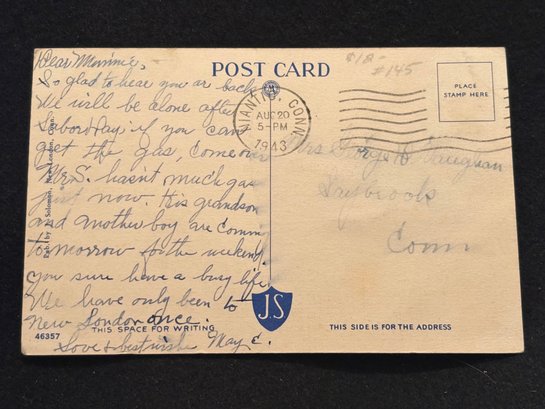 Dear Minnie,
So glad to hear you ar back
We will be alone after
Labor Day if you can
get the gas, come over
Mr S. hasn't much gas
just now. His grandson
and another boy are coming
tomorrow for the weekend.
You sure have a busy life
We have only been to
New London once.
Love & best wishes May C.
POST CARD
818-
#145
PLACE
STAMP HERE
NIANTIC, CONN.
AUG 20
5-PM
1943
Mrs George Vaughan
Conn
Pub. by J. Solomon, New London, Conn.
J.S
THIS SPACE FOR WRITING
THIS SIDE IS FOR THE ADDRESS
46357